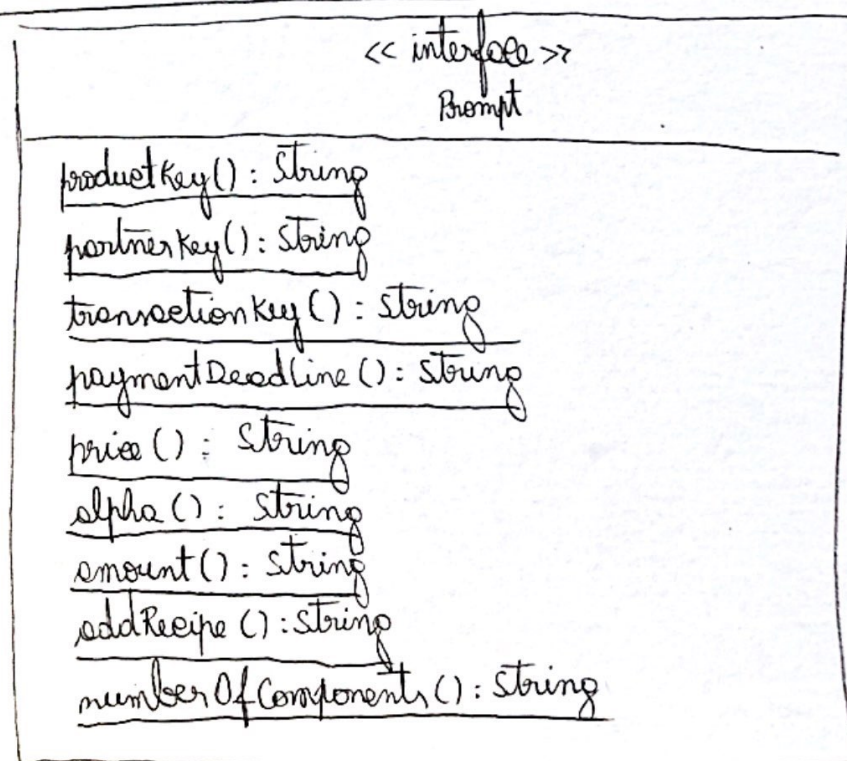 << interface >>
Prompt
productKey() : String
partnerKey() : String
transactionKey() : String
paymentDeadline() : String
price() : String
alpha() : String
amount() : String
addRecipe() : String
numberOfComponents() : String